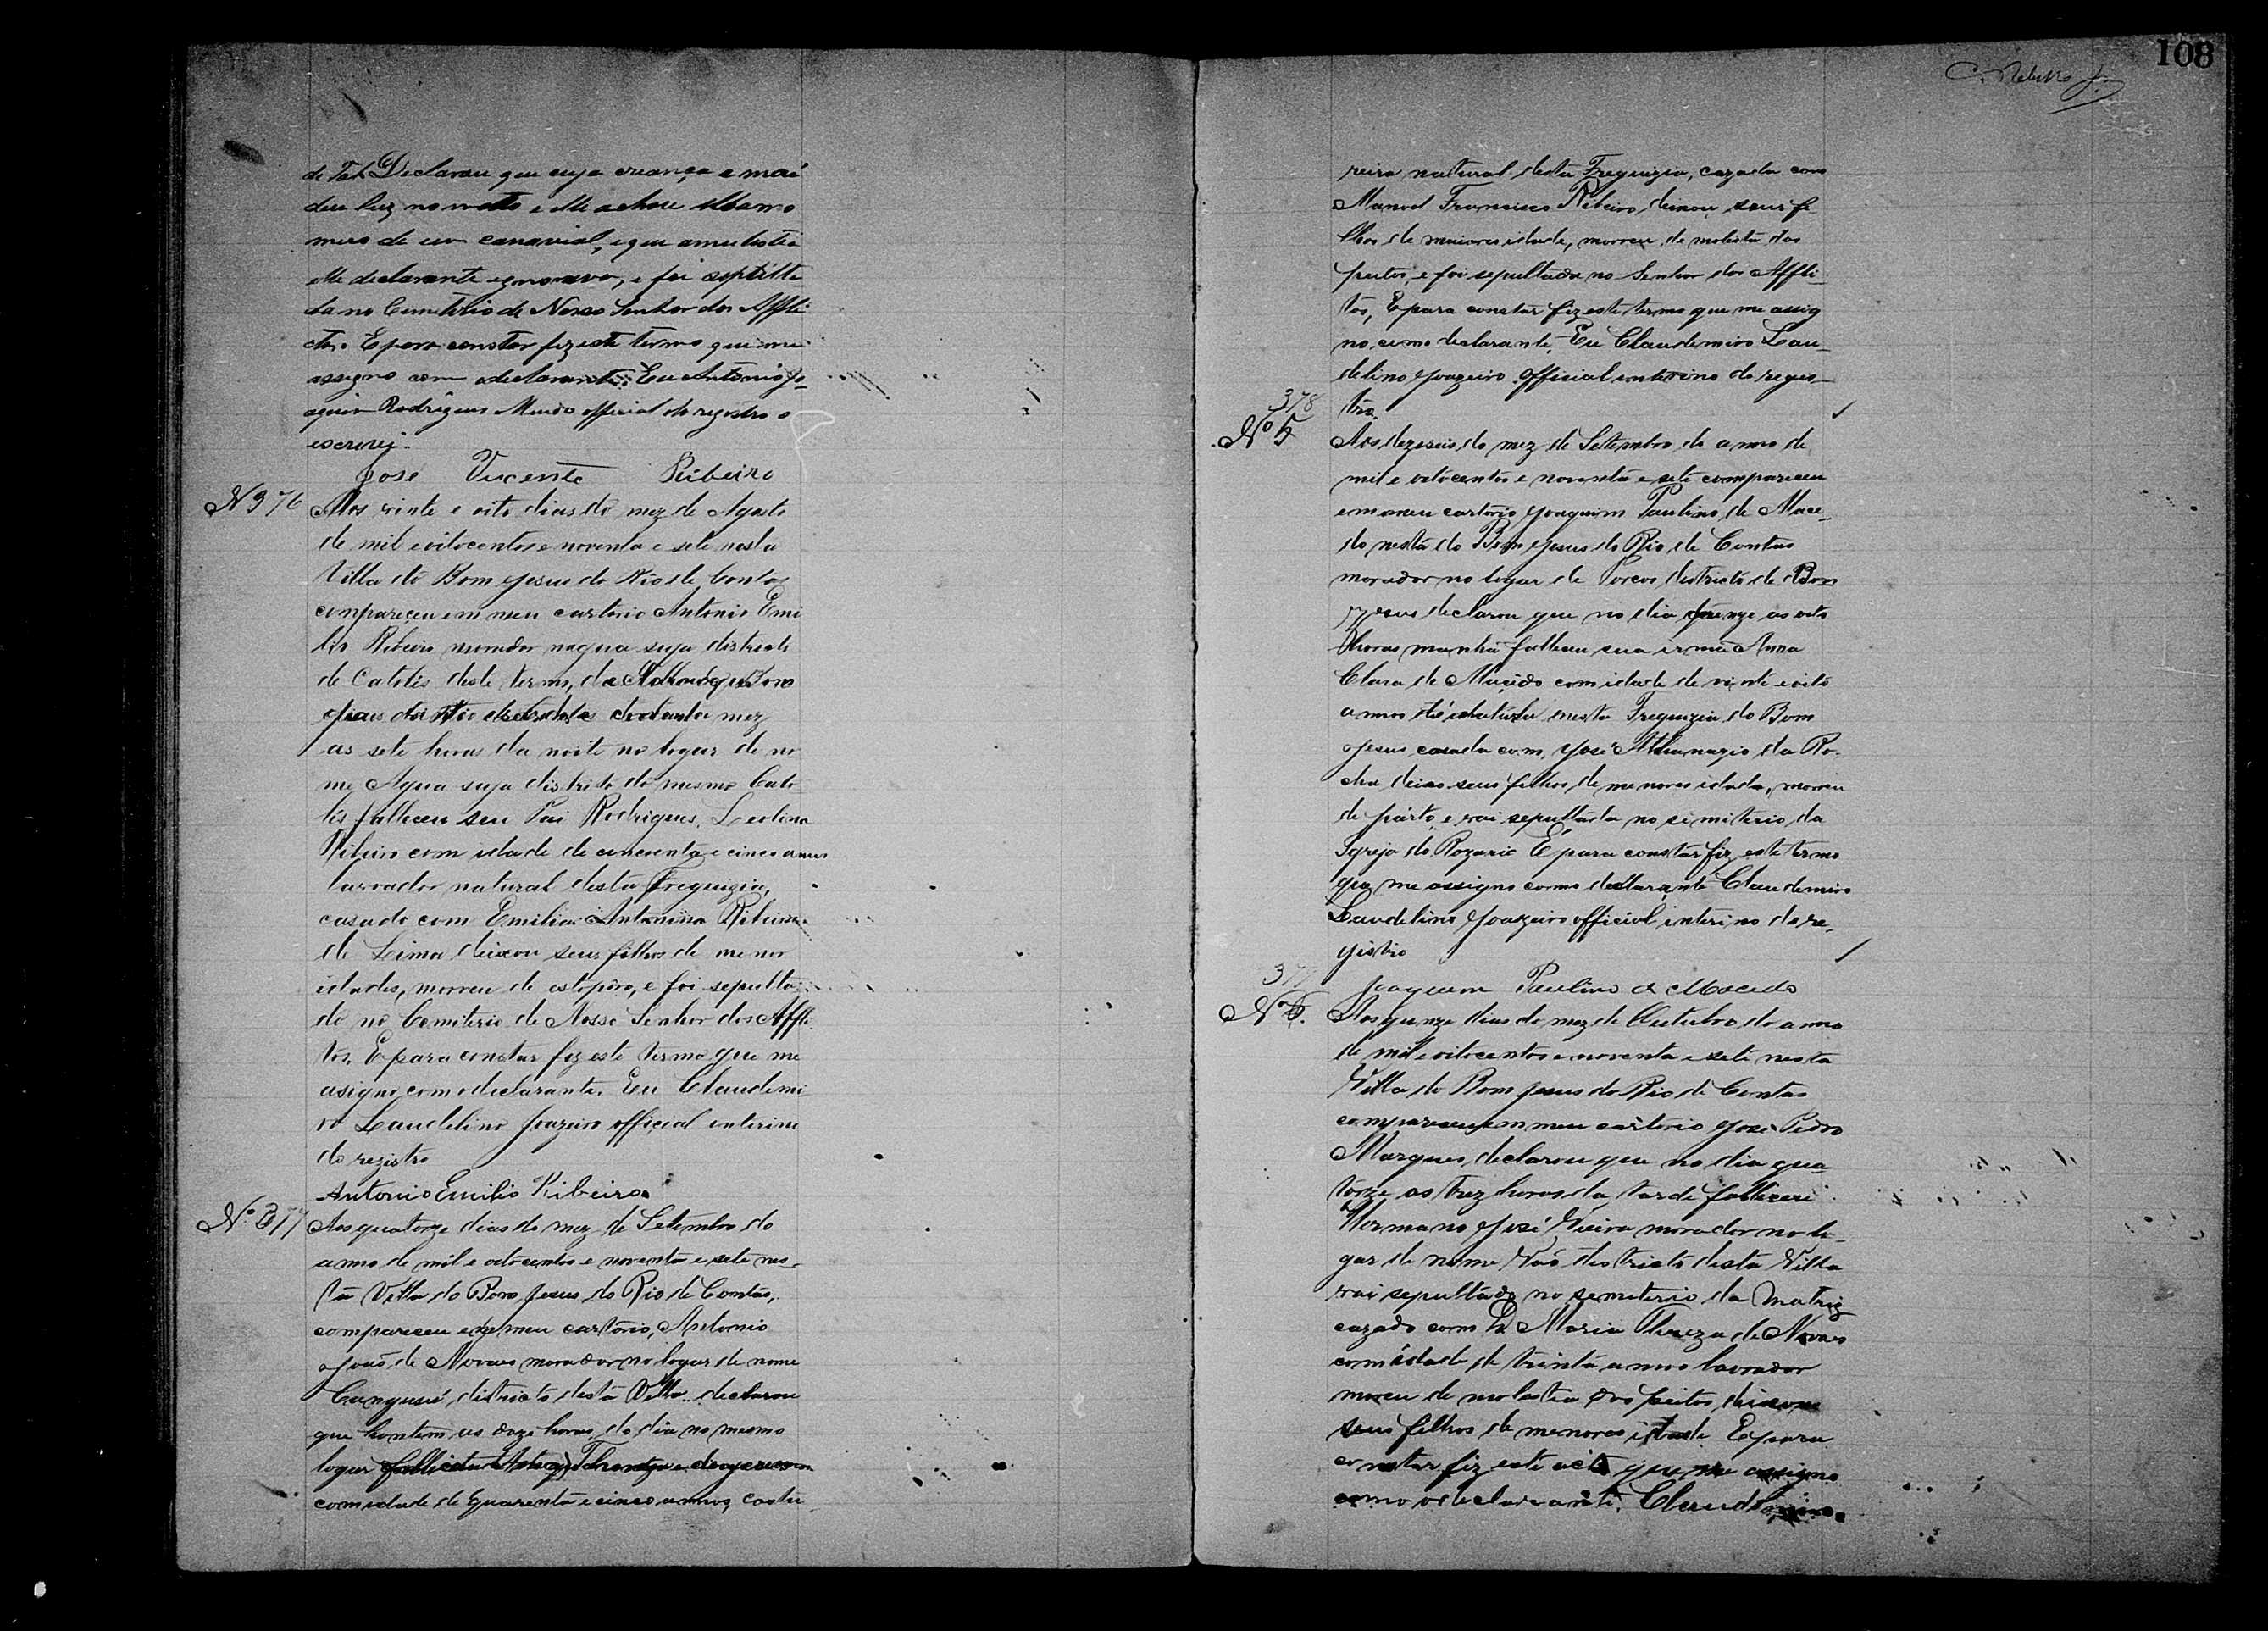 de Tal. Declarou que cuja criança a mai
deu luz no matto e elle achou
meio de um canavial, e que a molestia
elle declarante ignorava, e foi sepulta
da no Cemiterio de Nosso Senhor dos Affli
ctos. E para constar fiz este termo que me
assigno com o declarante. Eu Antonio Jo
aquim Rodrigues official do registro o
escrevi.
José Vicente Ribeiro
N 376
Aos vinte e oito dias do mez de Agosto
de mil e oitocentos e noventa e sete nesta
Villa do Bom Jesus do Rio de Contas
compareceu em meu cartorio Antonio Emi
lio Ribeiro morador nagua suja districto
de Catolés deste termo, que
do Rio de mez
as sete horas da noite no logar de no
me Agua suja districto do mesmo Cato
lés falleceu seu Pai Rodrigues Leolino
Ribeiro com idade de cincoenta e cinco annos
lavrador natural desta Freguizia,
casado com Emilia Antonina Ribeiro
de Lima deixou seus filhos de menor
idades, morreu de estopôro, e foi sepulta
do no Cemiterio de Nosso Senhor dos Affli
tos. E para constar fiz este termo que me
asigno com o declarante. Eu Claudemi
ro Laudelino Joazeiro official interino
do registro
Antonio Emilio Ribeiro
Nº 377
Aos quatorze dias do mez de Setembro do
anno de mil e oitocentos e noventa e sete nes
ta Villa do Bom Jesus do Rio de Contas,
compareceu em meu cartorio, Antonio
João de Novaes morador no logar de nome
districto desta Villa declarou
que hontem as doze horas do dia no mesmo
logar
com idade de quarenta e cinco annos, costu
108
reira natural desta Freguizia, cazada com
Manoel Francisco Ribeiro, deixou seus fi
lhos de maiores idade, morreu de molestia dos
peitos, e foi sepultada no Senhor dos Affli
tos, E para constar fiz este termo que me assig
no como declarante, Eu Claudemiro Lau
delino Joazeiro official interino do regis
tro.
378
Nº 5
Aos dezeseis do mez de Setembro do anno de
mil e oitocentos e noventa e sete compareceu
em meu cartorio Joaquim Paulino de Mace
do nesta do Bom Jesus do Rio de Contas
morador no logar de Porcos districto de Bom
Jesus declarou que no dia quinze as oito
horas manhã falleceu sua irmã Anna
Clara de Macêdo com idade de vinte e oito
annos nesta Freguizia do Bom
Jesus casada com José Athanazio da Ro
cha deixo seus filhos de menores idade, morreu
de parto e vai sepultada no semiterio da
Igreja do Rozario E para constar fiz este termo
que me assigno como declarante Claudemiro
Laudelino Joazeiro official interino do re
gistro
Joaquim Paulino de Macedo
37
Nº 6.
Aos quinze dias do mez de Outubro do anno
de mil e oitocentos e noventa e sete nesta
Villa do Bom Jesus do Rio de Contas
compareceu em meu cartorio José Pedro
Marques, declarou que no dia qua
torze as trez horas da tarde falleceu
Hermano José Vieira morador no lo
gar de nome Vaó districto desta Villa
vai sepultado no semiterio da Matriz
cazado com D. Maria Thereza de Novaes
com idade de trinta annos lavrador
moreu de molestia dos peitos, deixou
seus filhos de menores idade E para
constar fiz este acto que me assigno
como o declarante, Claudemiro